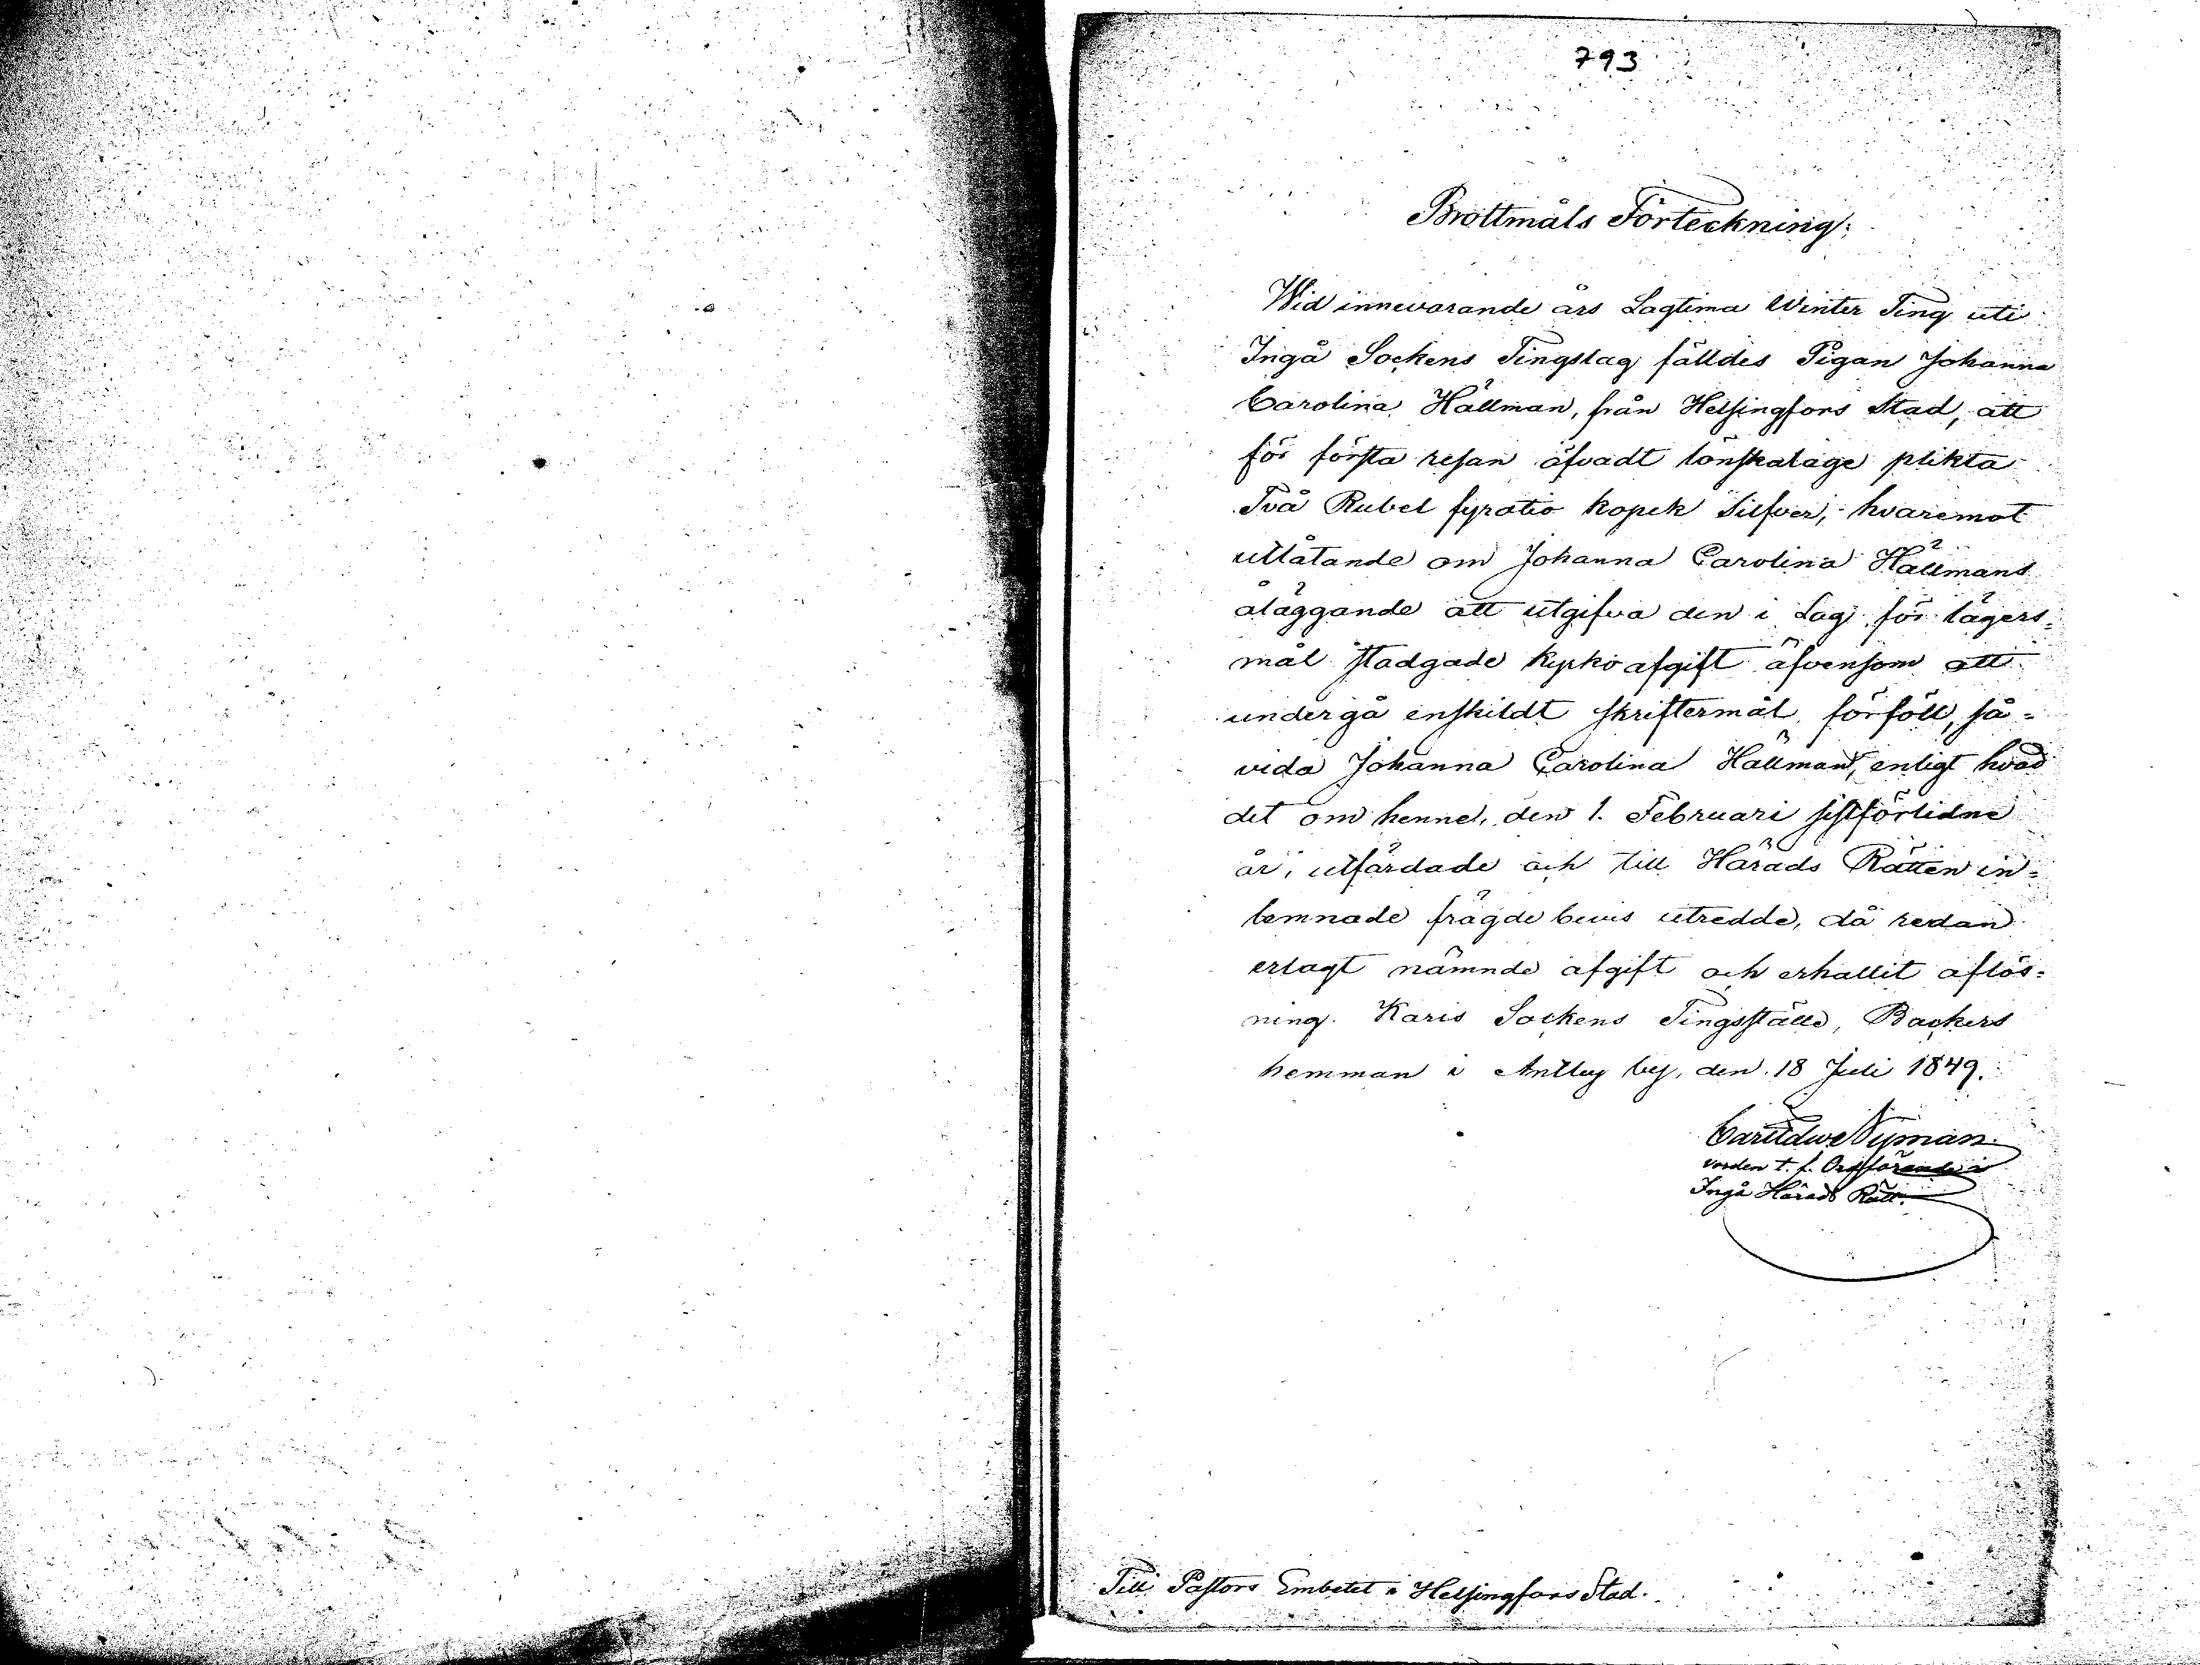 793
Brottmåls Förteckning:
Wid innevarande års Lagtima Winter Ting uti
Ingå Sockens Tingslag fälldes Pigan Johanna
Carolina Hällman, från Helsingfors Stad, att
för första resan öfvadt lönskaläge plikta
Två Rubel fyratio kopek Silfver, hvaremot
utlåtande om Johanna Carolina Hällmans
åläggande att utgifva den i Lag för lägers=
mål stadgade kyrko afgift äfvensom att
undergå enskildt skriftermål förföll, så=
vida Johanna Carolina Hällman, enligt hvad
det om henne, den 1. Februari sistförlidne
år, utfärdade och till Härads Rätten in=
lemnade frägde bevis utredde, då redan
erlagt nämnde afgift och erhallit aflös=
ning. Karis Sockens Tingsställe, Backers
hemman i Antby by, den 18 Juli 1849.
Nyman
vorden t. f. Ordförande i
Ingå Härads Rätt.
Till Pastors Embetet i Helsingfors Stad.